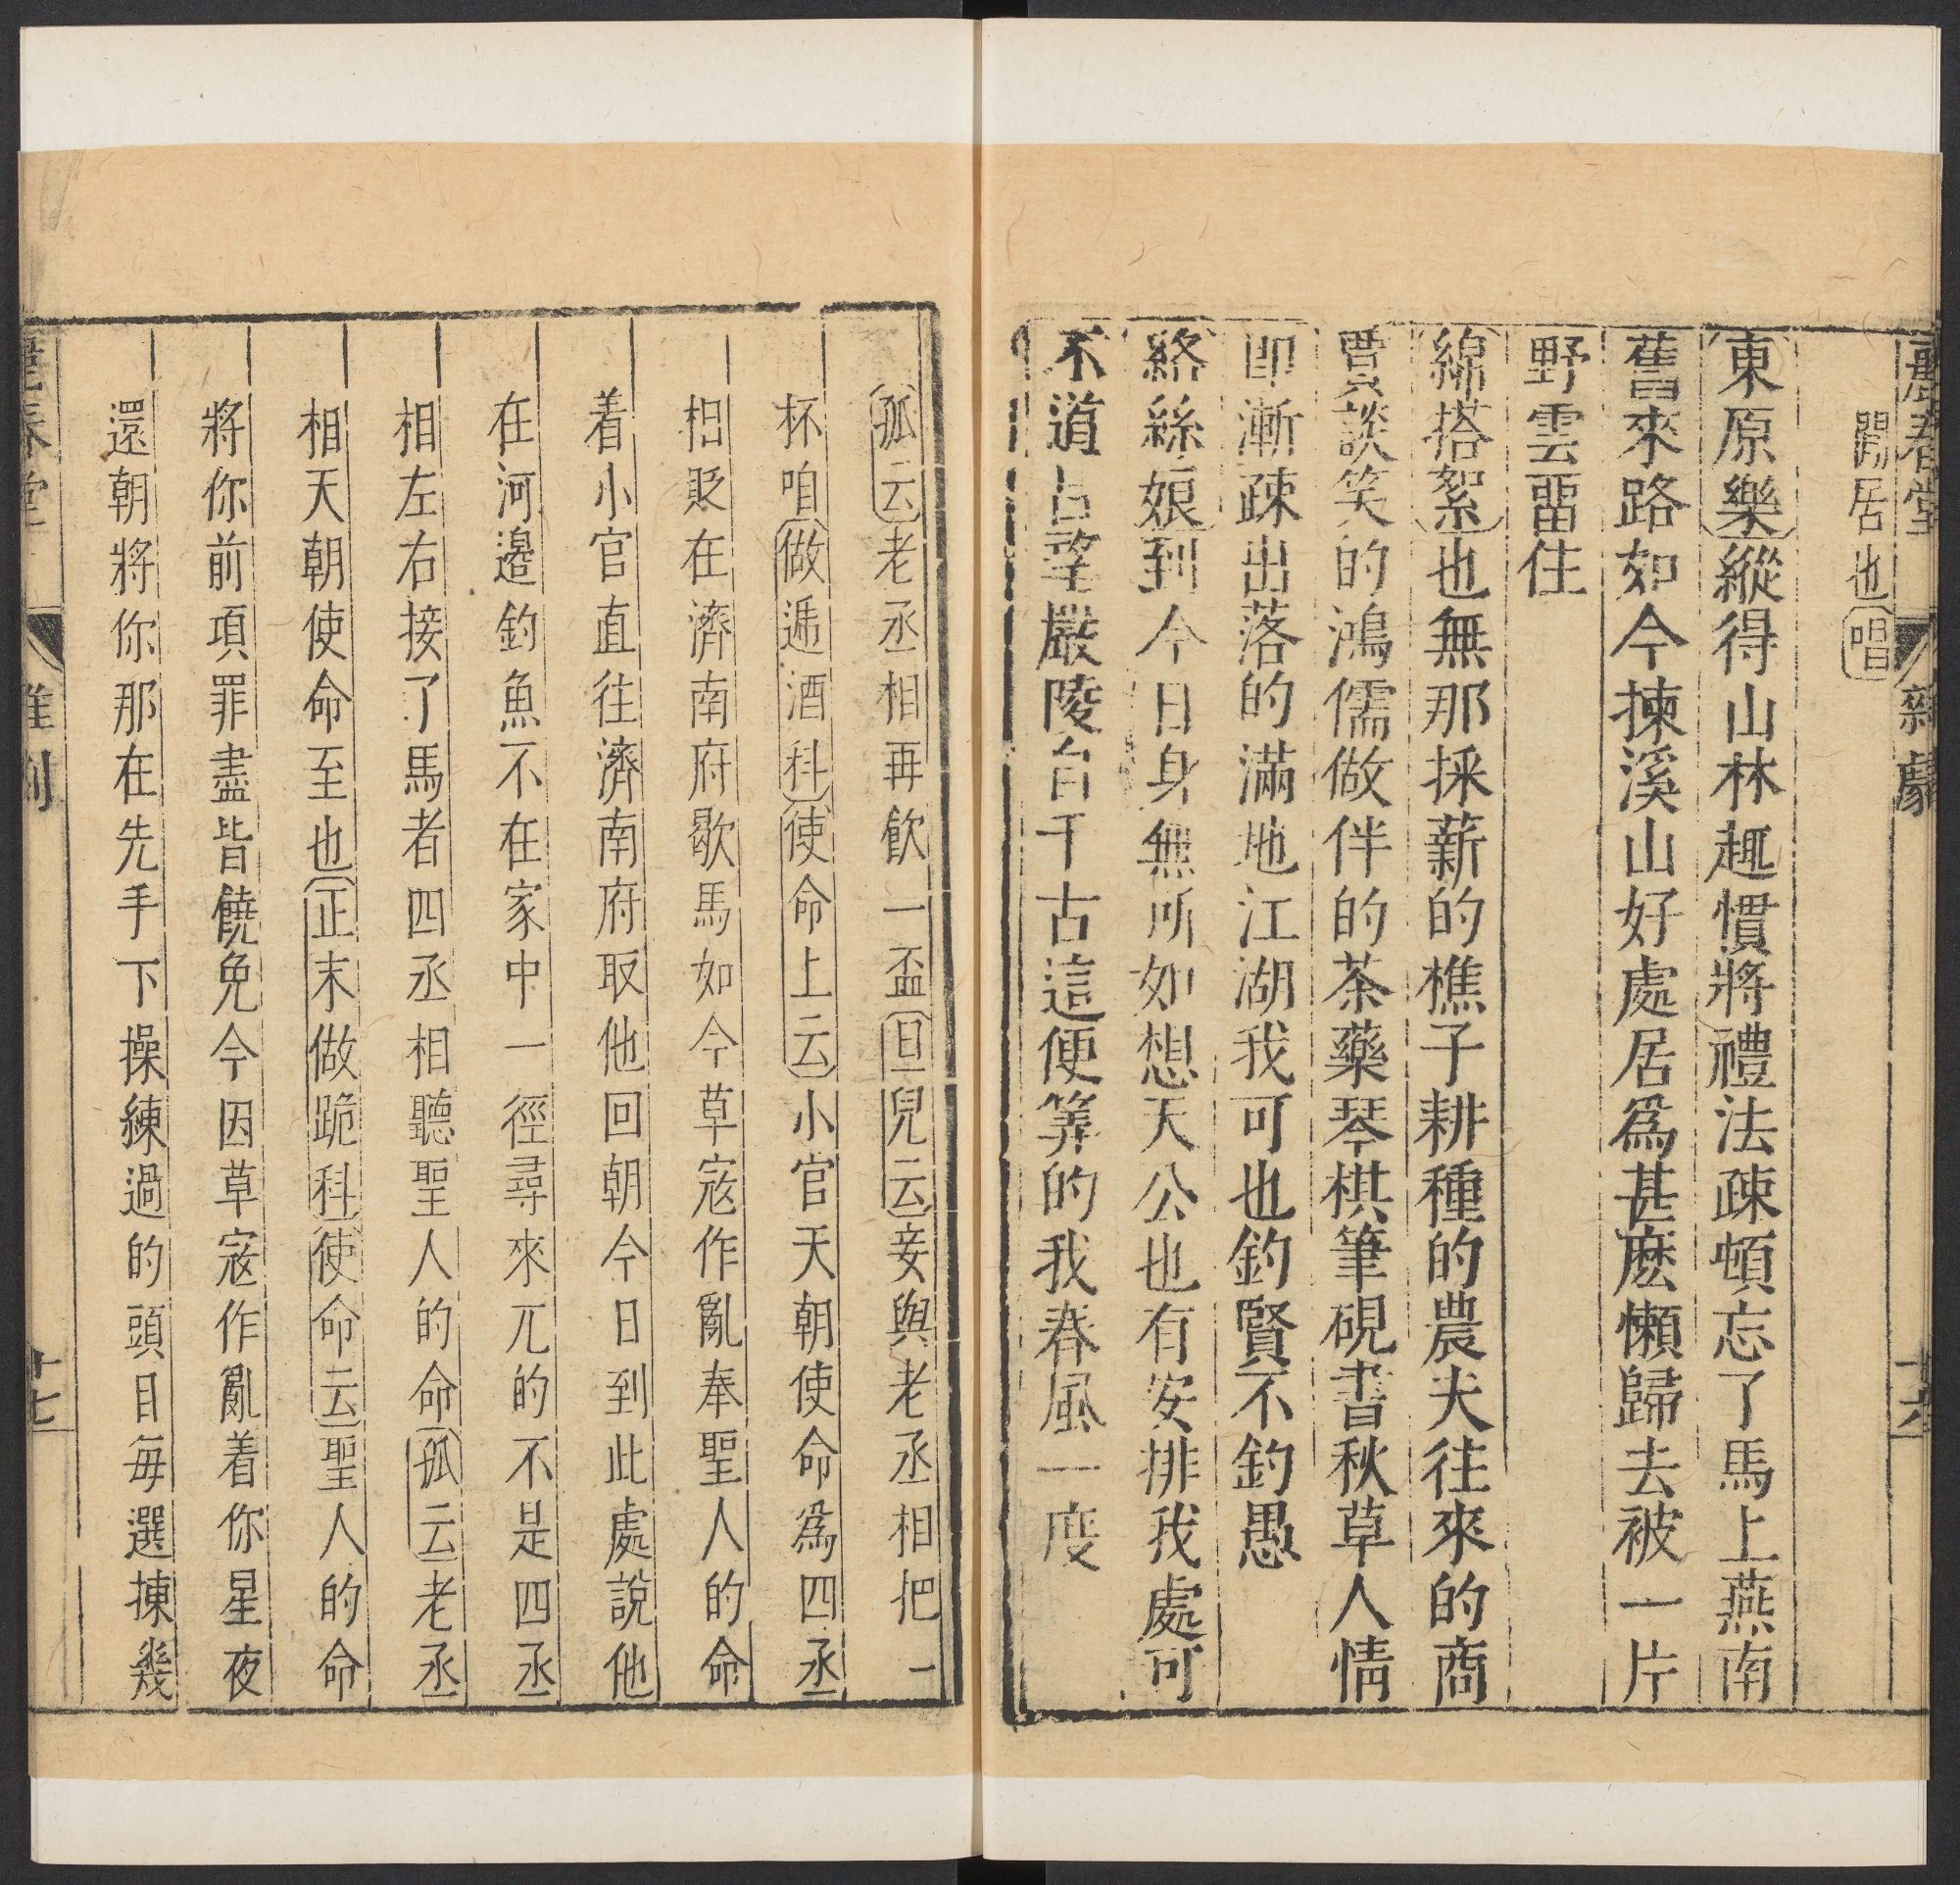 麗春堂 雜劇 十六
閑居也唱
東原樂縱得山林趣慣將禮法疎頓忘了馬上燕南
舊來路如今揀溪山好處居爲甚麽懶歸去被一片
野雲畱住
綿搭絮也無那採薪的樵子耕種的農夫往來的商
賈談笑的鴻儒做伴的茶藥琴棋筆硯書秋草人情
卽漸疎出落的滿地江湖我可也釣賢不釣愚
絡絲娘到今日身無所如想天公也有安排我處可
不道呂望嚴陵自千古這便筭的我春風一度
孤云老丞相再飲一盃旦兒云妾與老丞相把一
杯咱做遞酒科使命上云小官天朝使命爲四丞
相貶在濟南府歇馬如今草寇作亂奉聖人的命
着小官直往濟南府取他回朝今日到此處說他
在河邊釣魚不在家中一徑尋來兀的不是四丞
相左右接了馬者四丞相聽聖人的命孤云老丞
相天朝使命至也正末做跪科使命云聖人的命
將你前項罪盡皆饒免今因草寇作亂着你星夜
還朝將你那在先手下操練過的頭目每選揀幾
麗春堂 雜劇 十七